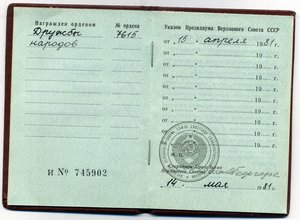 Награжден орденом № ордена
Дружбы 7615
народов
И № 745902
Указом Президиума Верховного Совета СССР
от 15 апреля 1981 г.
от 19 г.
от 19 г.
от 19 г.
от 19 г.
от 19 г.
от 19 г.
от 19 г.
Секретарь Президиума
Верховного Совета
14 мая 1981 г.